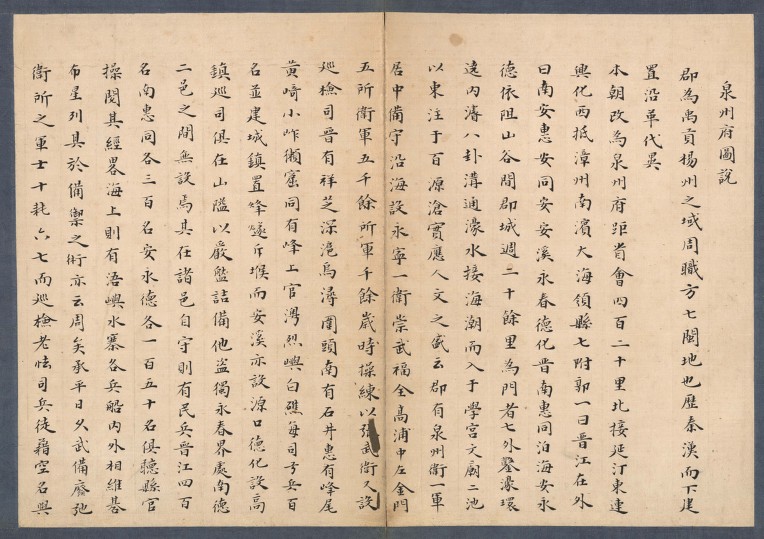 泉州府圖說
郡為禹貢揚州之域周職方七閩地也歷秦漢而下建
置沿革代異
本朝改為泉州府距省會四百二十里北接延汀東連
興化西抵漳州南濱大海領縣七附郭一曰晉江在外
曰南安惠安同安安溪永春德化晉南惠同泊海安永
德依阻山谷間郡城週三十餘里為門者七外鑿濠環
遶內濬八卦溝通濠水接海潮而入于學宮文廟二池
以東注于百源滄實應人文之盛云郡有泉州衛一軍
居中備守沿海設永寧一衛崇武福全高浦中左金門
五所衛軍五千餘所軍千餘歲時操練以張武衛又設
巡檢司晉有祥芝深滬烏潯圍頭南有石井惠有峰尾
黃崎小岞獺窟同有峰上官澳烈嶼白礁每司弓兵百
名並建城鎮置烽燧斥堠而安溪亦設源口德化設高
鎮巡司俱在山隘以嚴盤詰備他盜獨永春界處南德
二邑之間無設焉其在諸邑自守則有民兵晉江四百
名南惠同各三百名安永德各一百五十名俱聽縣官
操閱其經畧海上則有浯嶼水寨各兵船內外相維碁
布星列其於備禦之術亦云周矣承平日久武備廢弛
衛所之軍士十耗六七而巡檢老怯司兵徒藉空名與